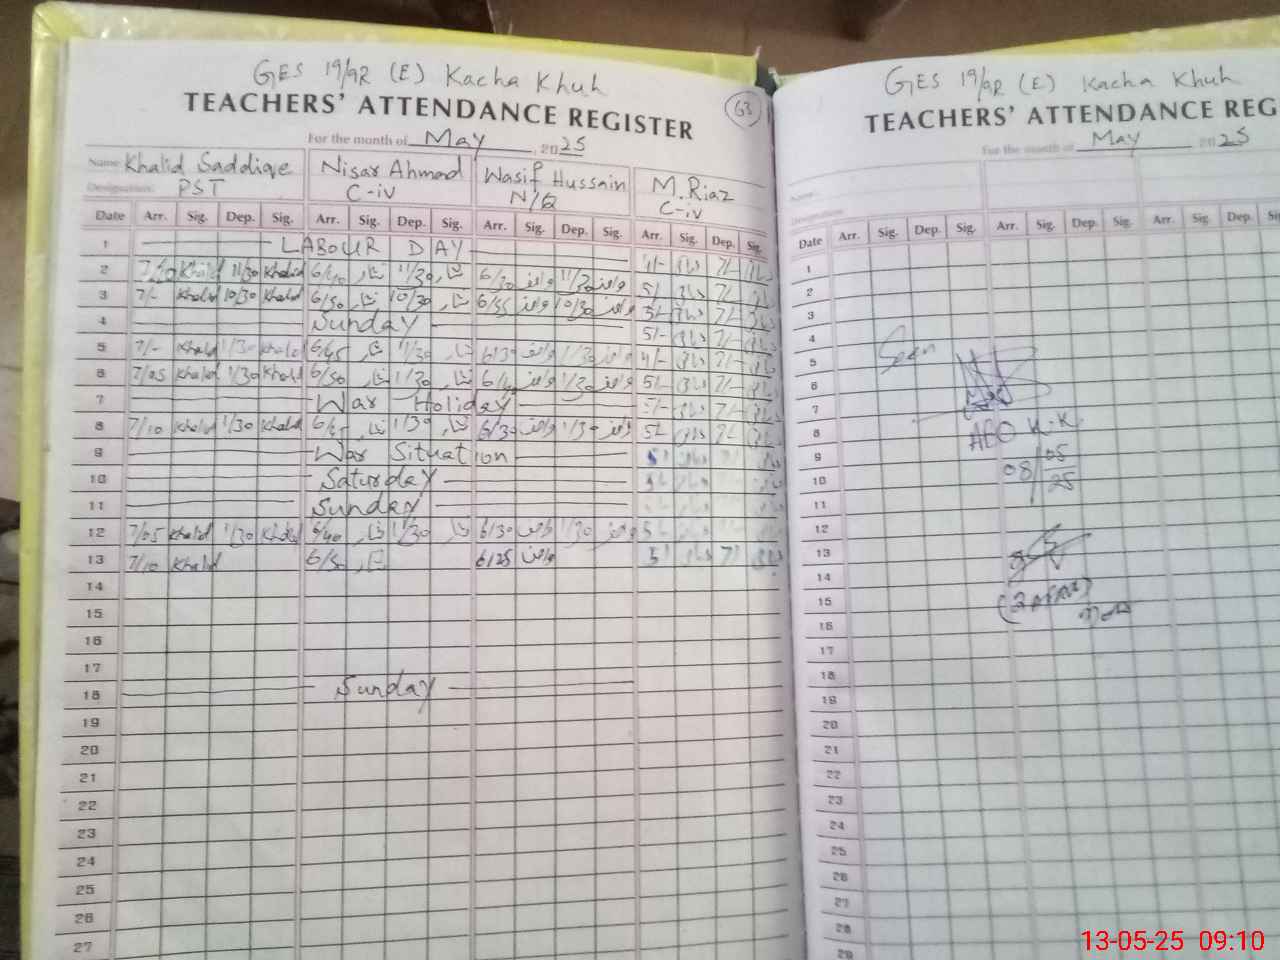 GES 19/9R (E) Kacha Khuh
TEACHERS' ATTENDANCE REGISTER
63
For the month of May, 2025
Name Khalid Saddiqve Nisar Ahmad Wasif Hussain M. Riaz
Designation: PST C-iv N/Q C-iv
Date Arr. Sig. Dep. Sig. Arr. Sig. Dep. Sig. Arr. Sig. Dep. Sig. Arr. Sig. Dep. Sig.
1 LABOUR DAY 4/- 7/-
2 Khalid 11/30 Khalid 6/40 نثار 11/30 نثار 6/30 واصف 11/30 واصف 5/- 7/-
3 7/- Khalid 10/30 Khalid 6/50 نثار 10/30 نثار 6/55 واصف 10/30 واصف 5/- 7/-
4 Sunday 5/- 7/-
5 7/- Khalid 1/30 Khalid 6/45 نثار 1/30 نثار 6/30 واصف 1/30 واصف 4/- 7/-
6 7/05 Khalid 1/30 Khalid 6/50 نثار 1/30 نثار واصف 1/30 واصف 5/- 7/-
7 War Holiday 5/- 7/-
8 7/10 Khalid 1/30 Khalid 6/45 نثار 1/30 نثار 6/30 واصف 1/30 واصف 5/- 7/-
9 War Situation
10 Saturday
11 Sunday
12 7/05 Khalid 1/30 Khalid 6/40 نثار 1/30 نثار 6/30 واصف 1/30 واصف
13 7/10 Khalid 6/50 نثار 6/25 واصف
14
15
16
17
18 Sunday
19
20
21
22
23
24
25
26
27
GES 19/9R (E) Kacha Khuh
TEACHERS' ATTENDANCE REG
For the month of May 2025
Name
Designation:
Date Arr. Sig. Dep. Sig. Arr. Sig. Dep. Sig. Arr. Sig. Dep.
1
2
3
4
5 Seen
6
7
8 AEO K.K
9 08/05/25
10
11
12
13
14
15
16
17
18
19
20
21
22
23
24
25
26
27
28
29
13-05-25 09:10